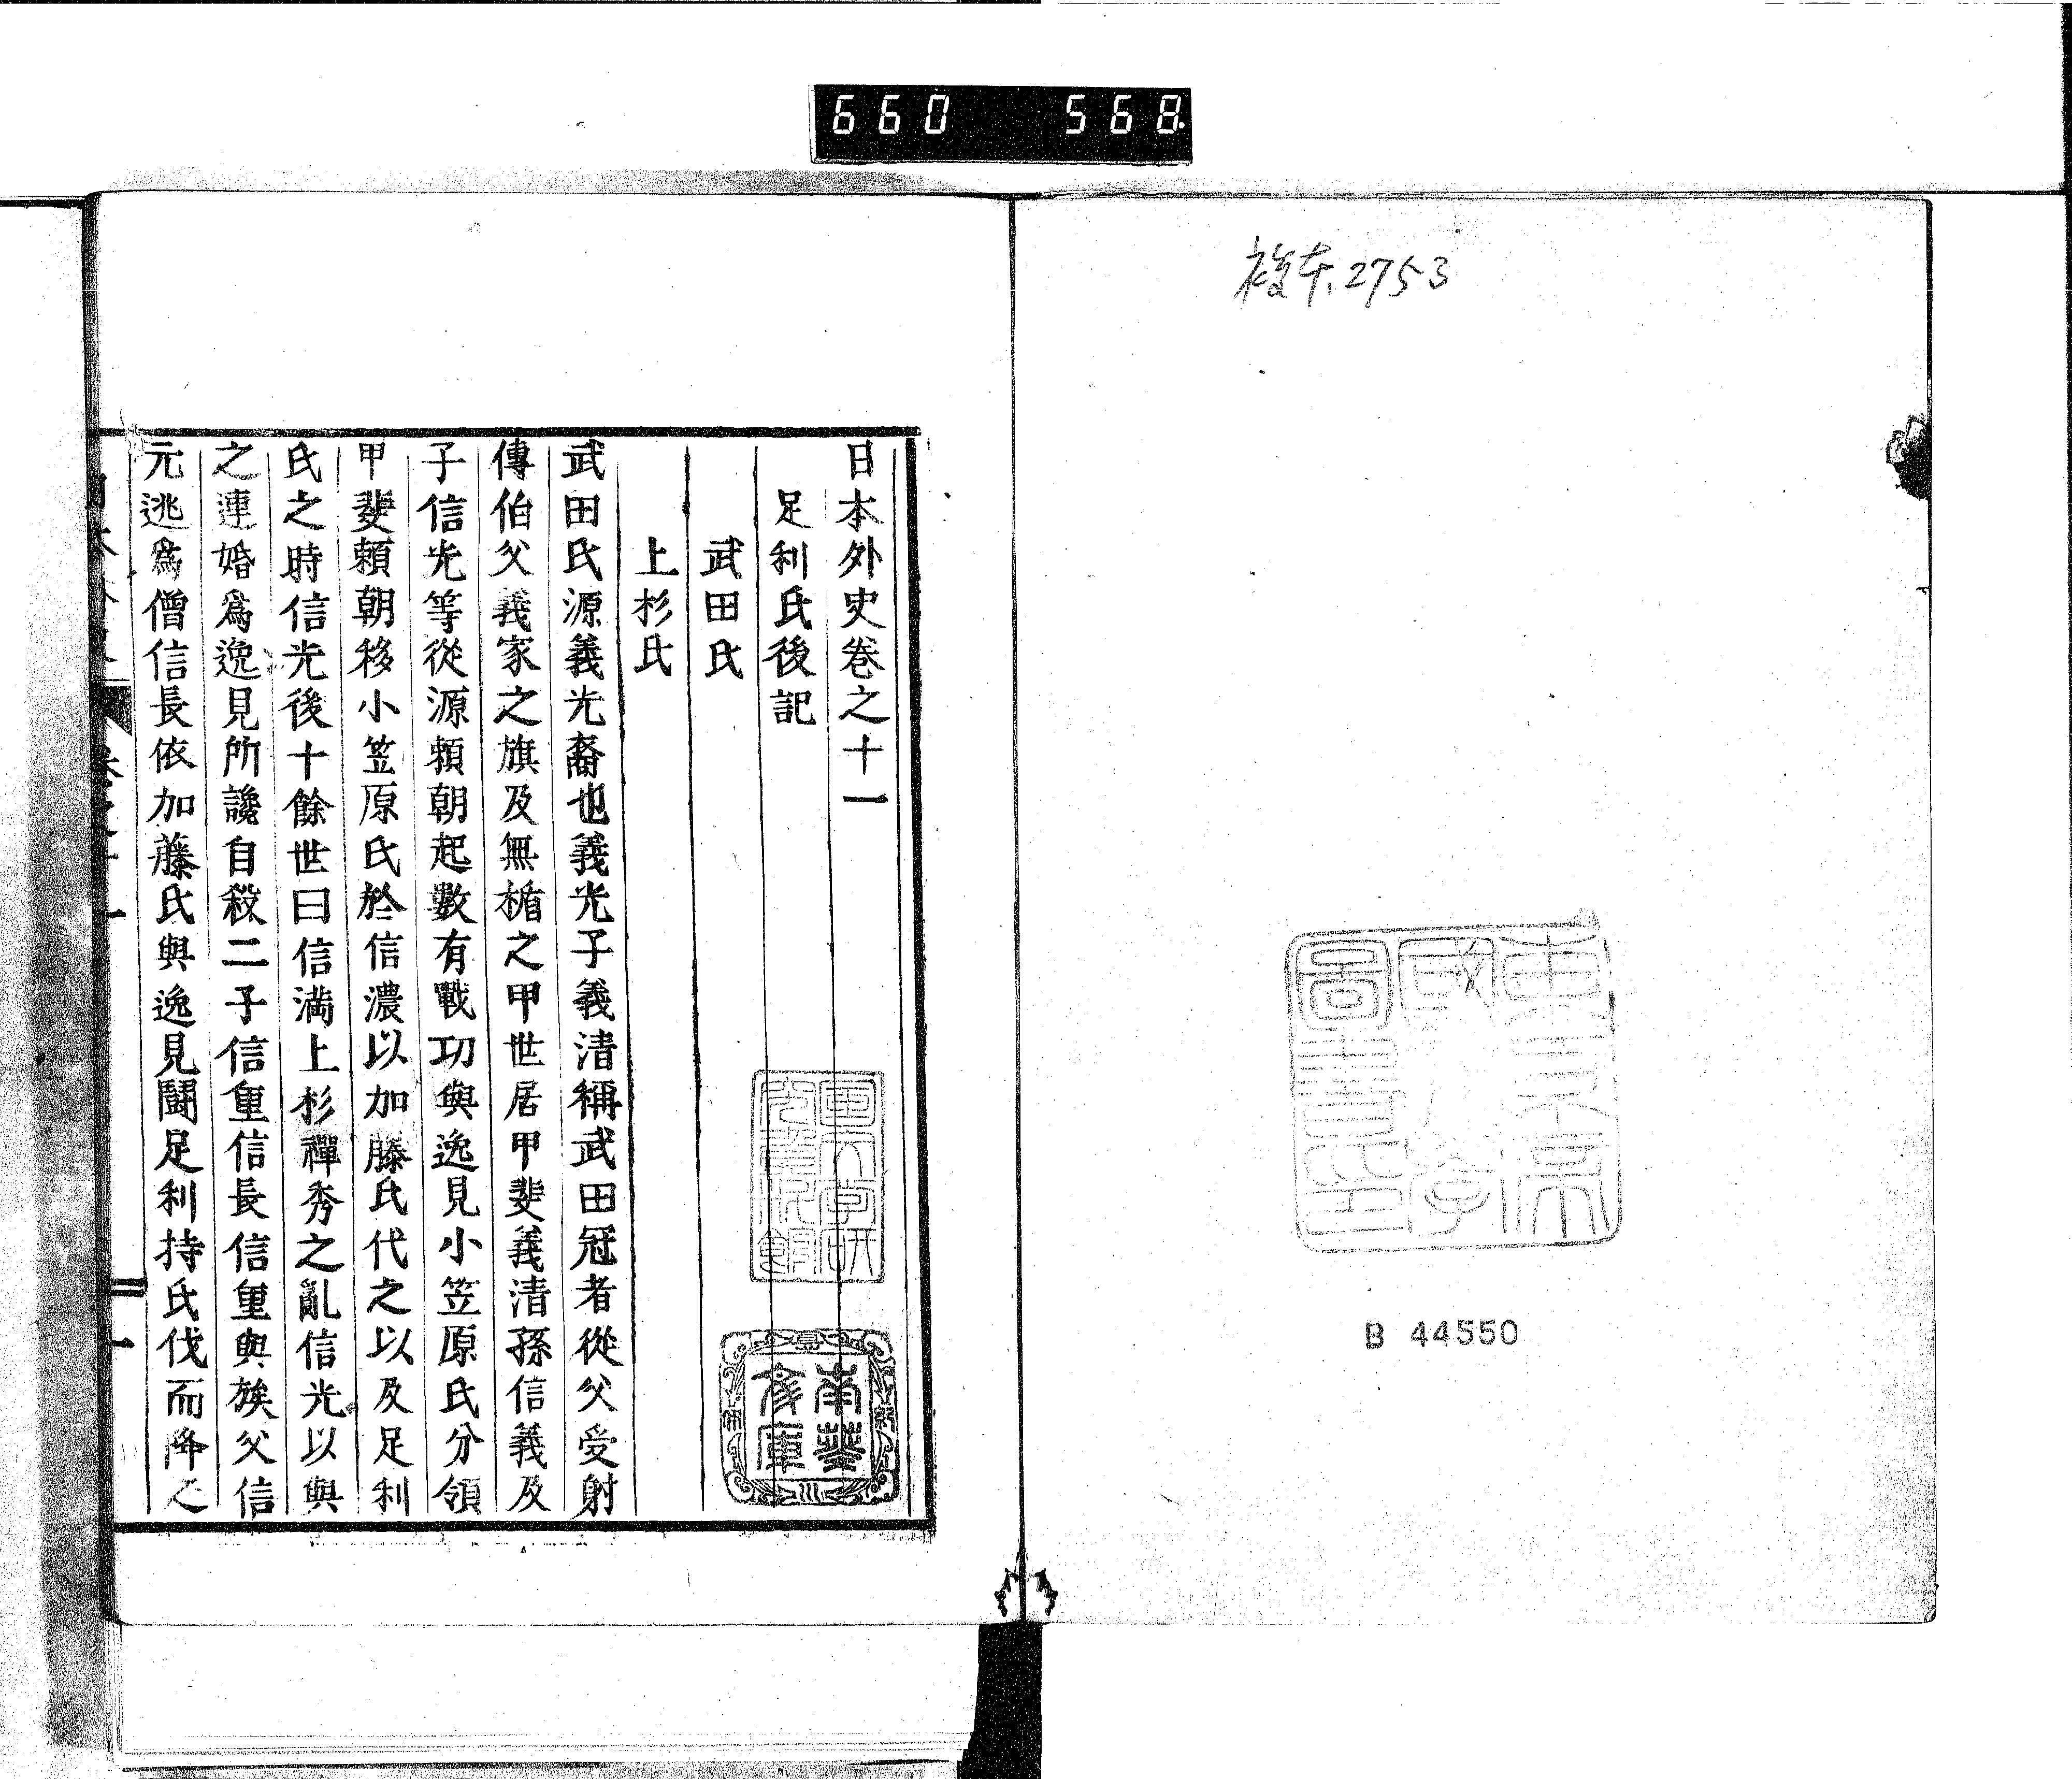 660 568.
複本.2753
東京帝國大學圖書印
B 44550
日本外史卷之十一
足利氏後記
武田氏
上杉氏
武田氏源義光裔也義光子義清稱武田冠者從父受射
傳伯父義家之旗及無楯之甲世居甲斐義清孫信義及
子信光等從源賴朝起數有戰功與逸見小笠原氏分領
甲斐賴朝移小笠原氏於信濃以加藤氏代之以及足利
氏之時信光後十餘世曰信滿上杉禪秀之亂信光以與
之連婚爲逸見所讒自殺二子信重信長信重與族父信
元逃爲僧信長依加藤氏與逸見鬪足利持氏伐而降之
南葵文庫